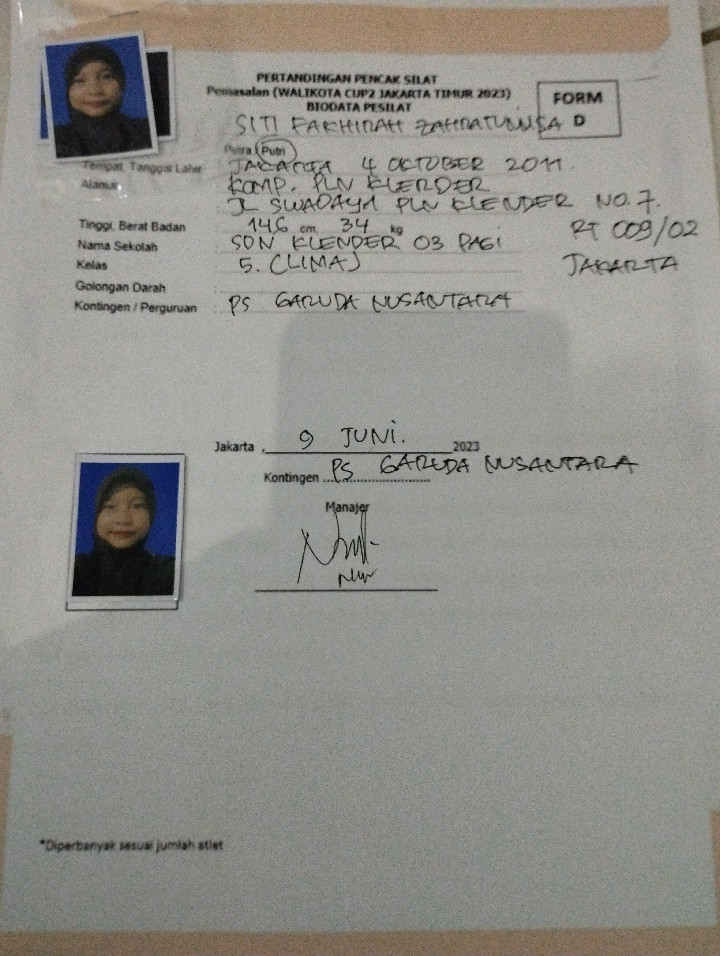 PERTANDINGAN PENCAK SILAT
Pemasalan (WALIKOTA CUP2 JAKARTA TIMUR 2023)
BIODATA PESILAT
FORM D
SITI FAKHIRAH ZAHRATUNNISA
Putra / Putri
Tempat, Tanggal Lahir JAKARTA 4 OKTOBER 2011.
Alamat KOMP. PLN KLENDER
JL SWADAYA PLN KLENDER NO. 7.
RT 009/02
JAKARTA
Tinggi, Berat Badan : 146 cm, 34 kg
Nama Sekolah : SDN KLENDER 03 PAGI
Kelas : 5. (LIMA)
Golongan Darah :
Kontingen / Perguruan : PS GARUDA NUSANTARA
Jakarta , 9 JUNI. 2023
Kontingen PS GARUDA NUSANTARA
Manajer
*Diperbanyak sesuai jumlah atlet